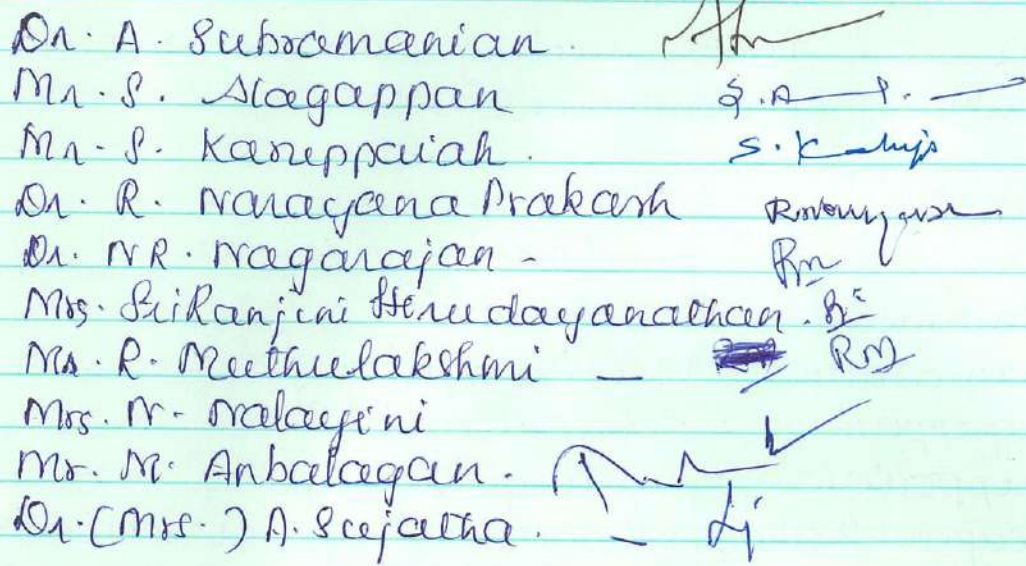 Dr. A. Subramanian.
Mr. S. Alagappan S.A
Mr. S. Karuppaiah. S. K
Dr. R. Narayana Prakash
Dr. NR. Nagarajan - Rn
Mrs. SriRanjini Hirudayanathan.
Ms. R. Muthulakshmi - RM
Mrs. N. Nalayini
Mr. M. Anbalagan.
Dr. (Mrs.) A. Sujatha. -